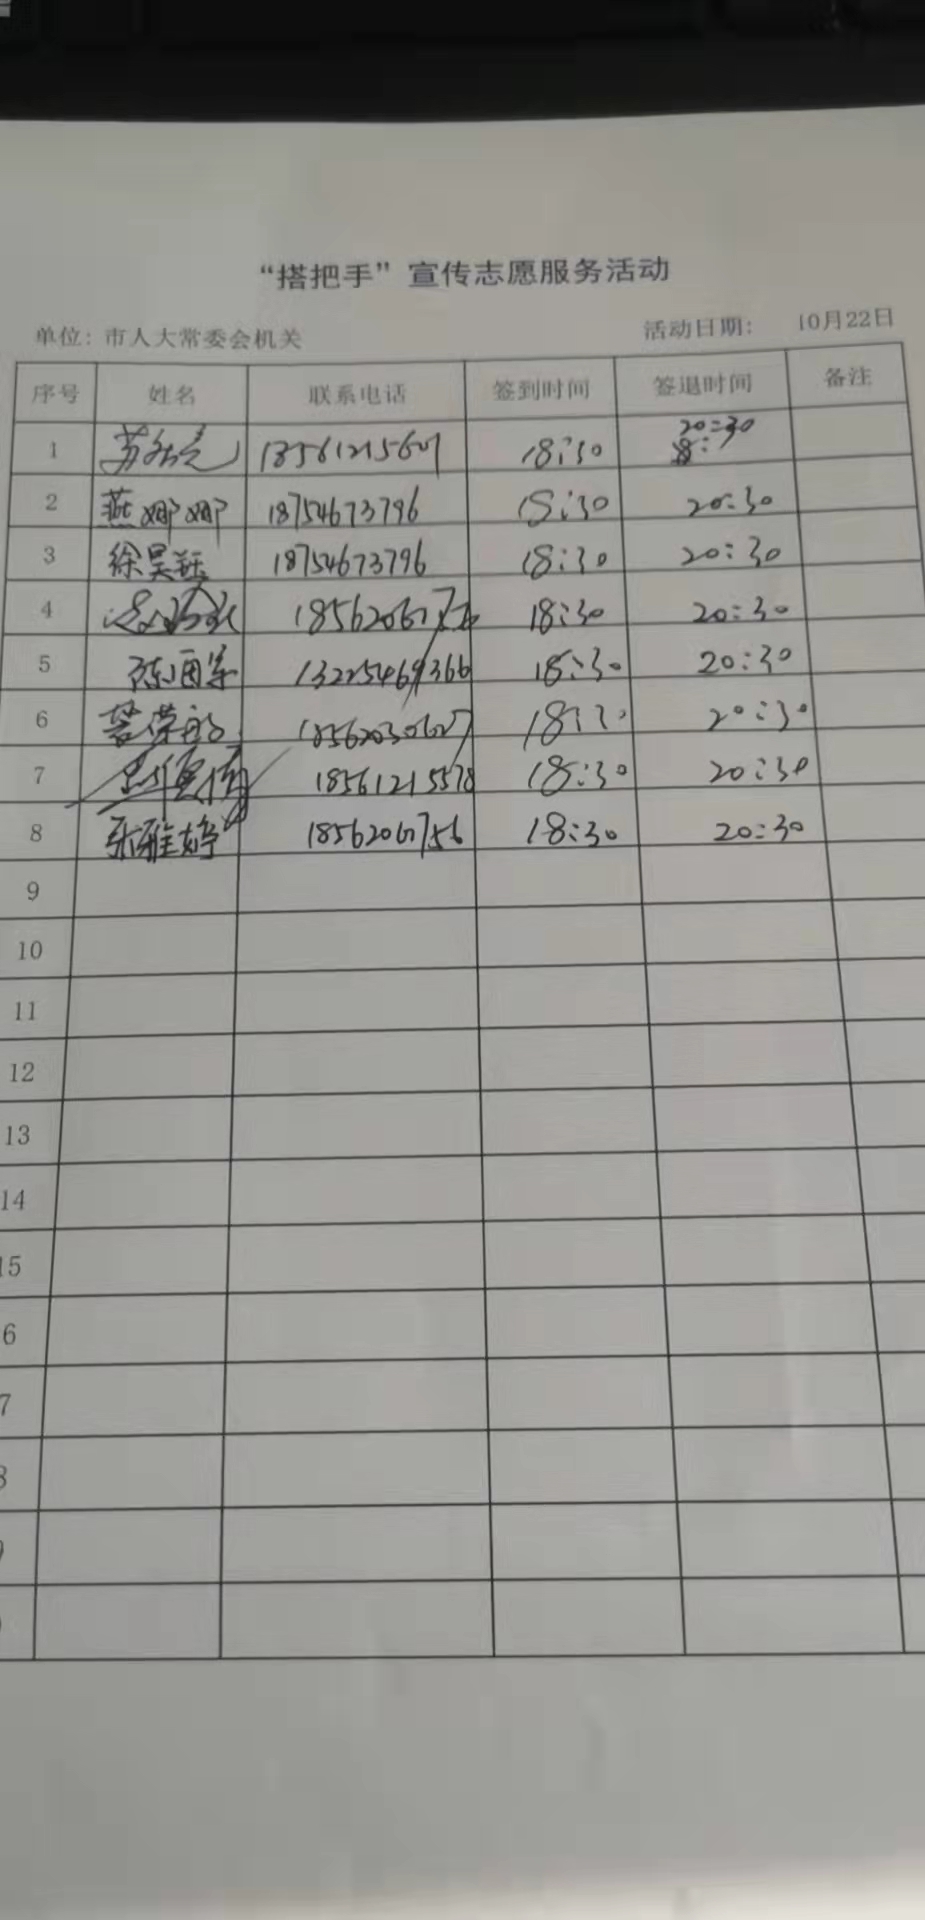 “搭把手”宣传志愿服务活动
单位：市人大常委会机关 活动日期： 10月22日
序号 姓名 联系电话 签到时间 签退时间 备注
1 18:30 20:30
2 燕娜娜 18754673796 18:30 20:30
3 徐昊钰 18754673796 18:30 20:30
4 18:30 20:30
5 13225469366 18:30 20:30
6 20:30
7 18561215578 18:30 20:30
8 张雅婷 18562061756 18:30 20:30
9
10
11
12
13
14
15
6
7
8
9